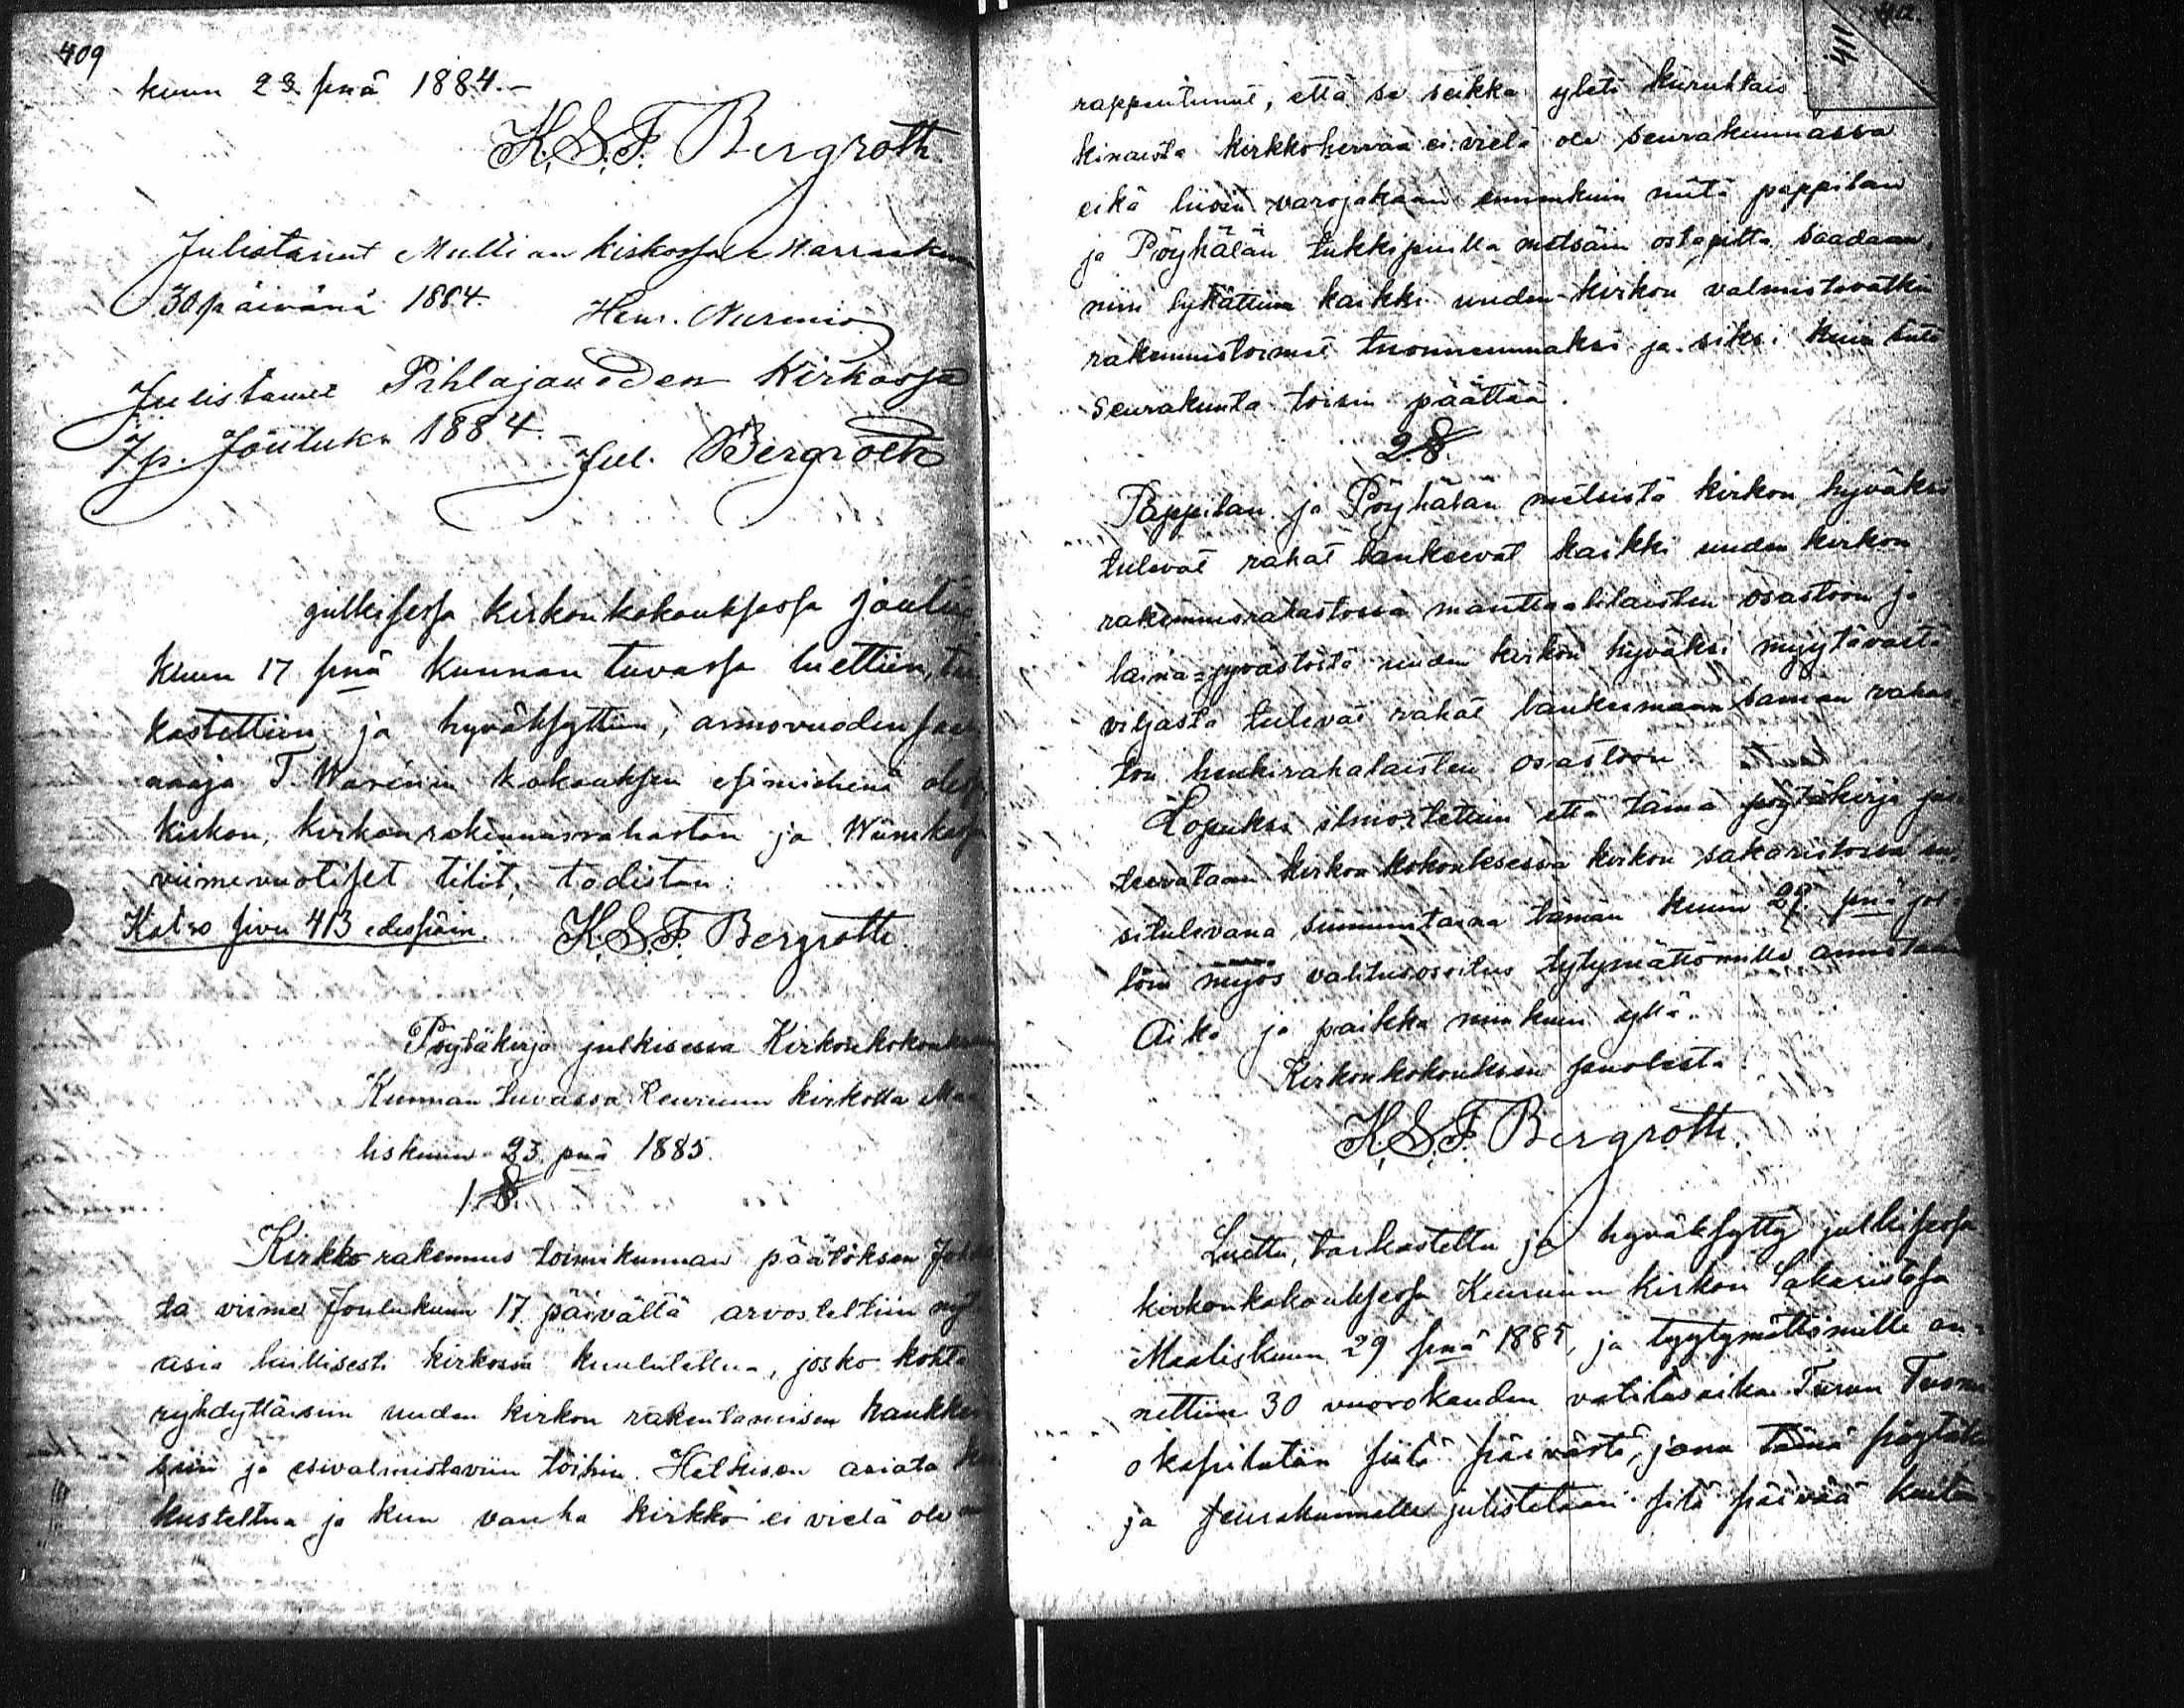 409
kuun 23 pnä 1884.-
K. S. F. Bergroth.
Julistanut Multian kirkossa Marraskuun
30 päivänä 1884. Henr. Nurmio
Julistanut Pihlajaveden Kirkossa
7 p. Jouluku 1884.- Jul. Bergroth
Julkisessa kirkonkokouksessa joulu-
kuun 17 pnä kunnan tuvassa luettiin, tar-
kastettiin ja hyväksyttiin, armovuodensaar-
naaja T. Warénin kokouksen esimiehenä oles
kirkon, kirkonrakennusrahaston ja Wiinikassan
viimevuotiset tilit, todistan:
Katso sivu 413 edespäin. K. S. F. Bergroth.
Pöytäkirja julkisessa Kirkonkokouk
Kunnan tuvassa Keuruun kirkolla Maa
liskuun 23 pnä 1885.
1 §.
Kirkko rakennus toimikunnan päätöksen joh
ta viime Joulukuun 17 päivältä arvosteltiin nyt
asia laillisesti kirkossa kuulutettua, josko kohta
ryhdyttäisiin uuden kirkon rakentamisen hankkei
siin ja esivalmistaviin töihin. Halkisen asiata kes
kusteltua ja kun vanha kirkko ei vielä ole
411
412.
rappeutunut, että se seikka yleti
kirkkoherraa ei vielä ole seurakunnassa
eikä liioin varojakaan ennenkuin niitä pappilan
ja Pöyhälän tukkipuilla metsäin ostajilta saadaan,
niin lykättiin kaikki uuden kirkon valmistavatkin
rakennustoimet tuonnemmaksi ja siksi kuin
seurakunta toisin päättää.
2 §.
Pappilan ja Pöyhälän metsistä kirkon hyväksi
tulevat rahat lankeevat kaikki uuden kirkon
rakennusrahastossa manttaalilaisten osastoon ja
laina-jyvästöstä uuden kirkon hyväksi myytävästä
viljasta tulevat rahat lankeemaan saman rahas-
ton henkirahalaisten osastoon.
Lopuksi ilmoitettiin että tämä pöytäkirja jul
teerataan kirkon kokouksessa kirkon sakaristossa en-
situlevana sunnuntaina tämän kuun 29 pnä jol-
loin myös valitusosoitus tytymättömille annetaan
Aika ja paikka niinkuin yllä.
Kirkonkokouksen puolesta:
K. S. F. Bergroth.
Luettu, tarkastettu ja hyväksytty julkisessa
kirkonkokouksessa Keuruun kirkon Sakaristossa
Maaliskuun 29 pnä 1885, ja tyytymättömille an-
nettiin 30 vuorokauden valitusaika Turun Tuomi
okapituliin siitä päivästä, jona tämä pöytäki
ja seurakunnalle julistetaan sitä päivää kuiten